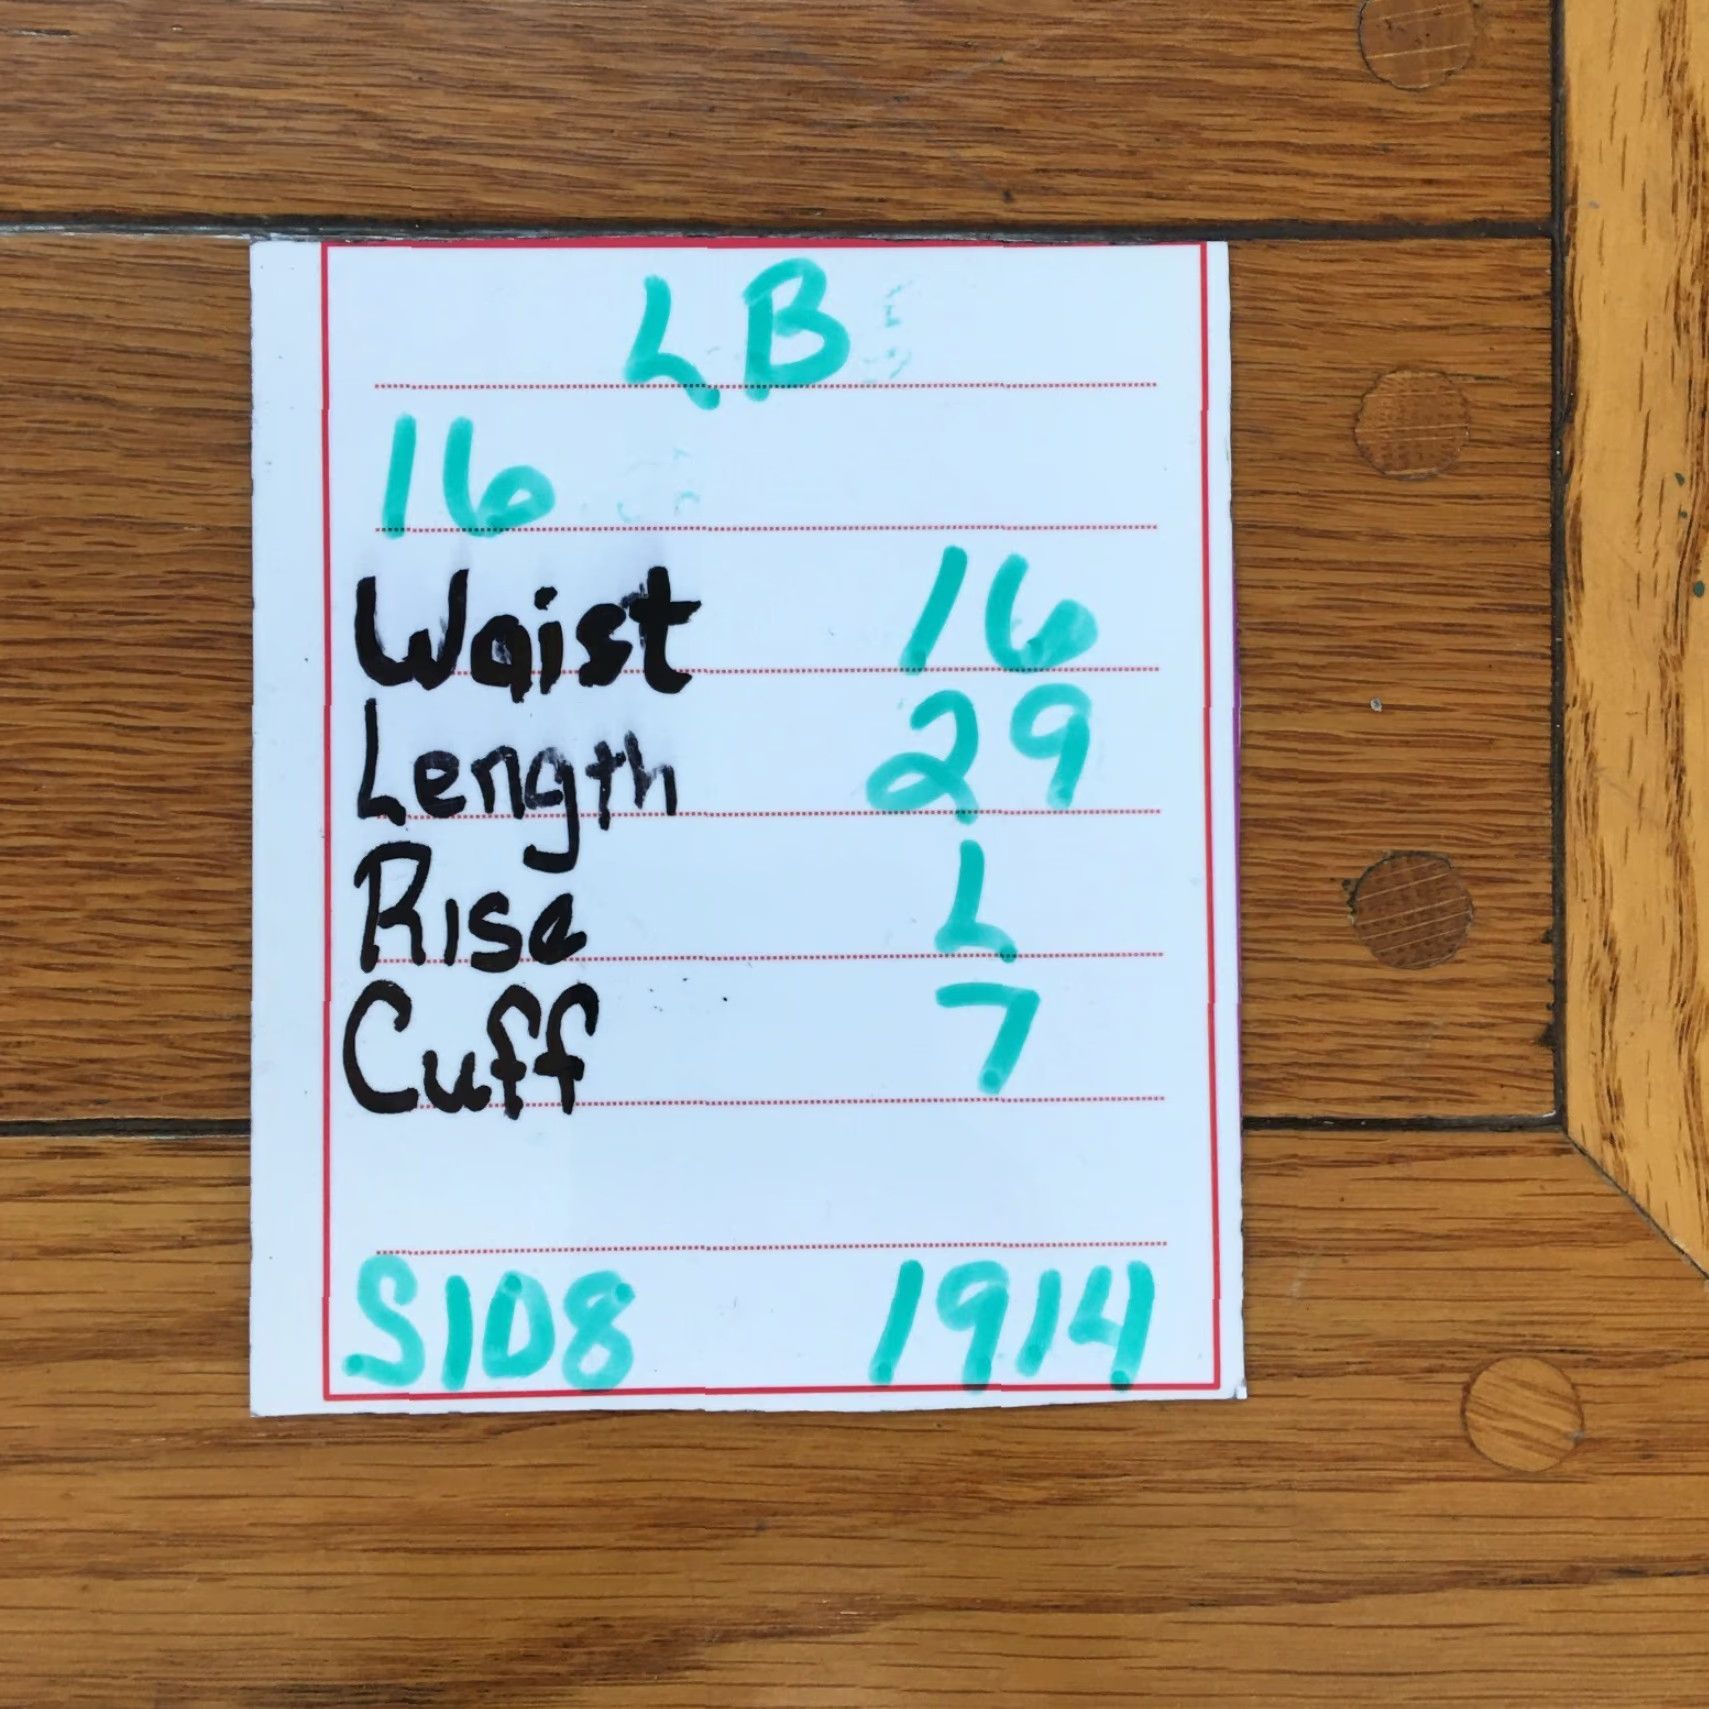 LB
16
Waist 16
Length 29
Rise L
Cuff 7
S108 1914